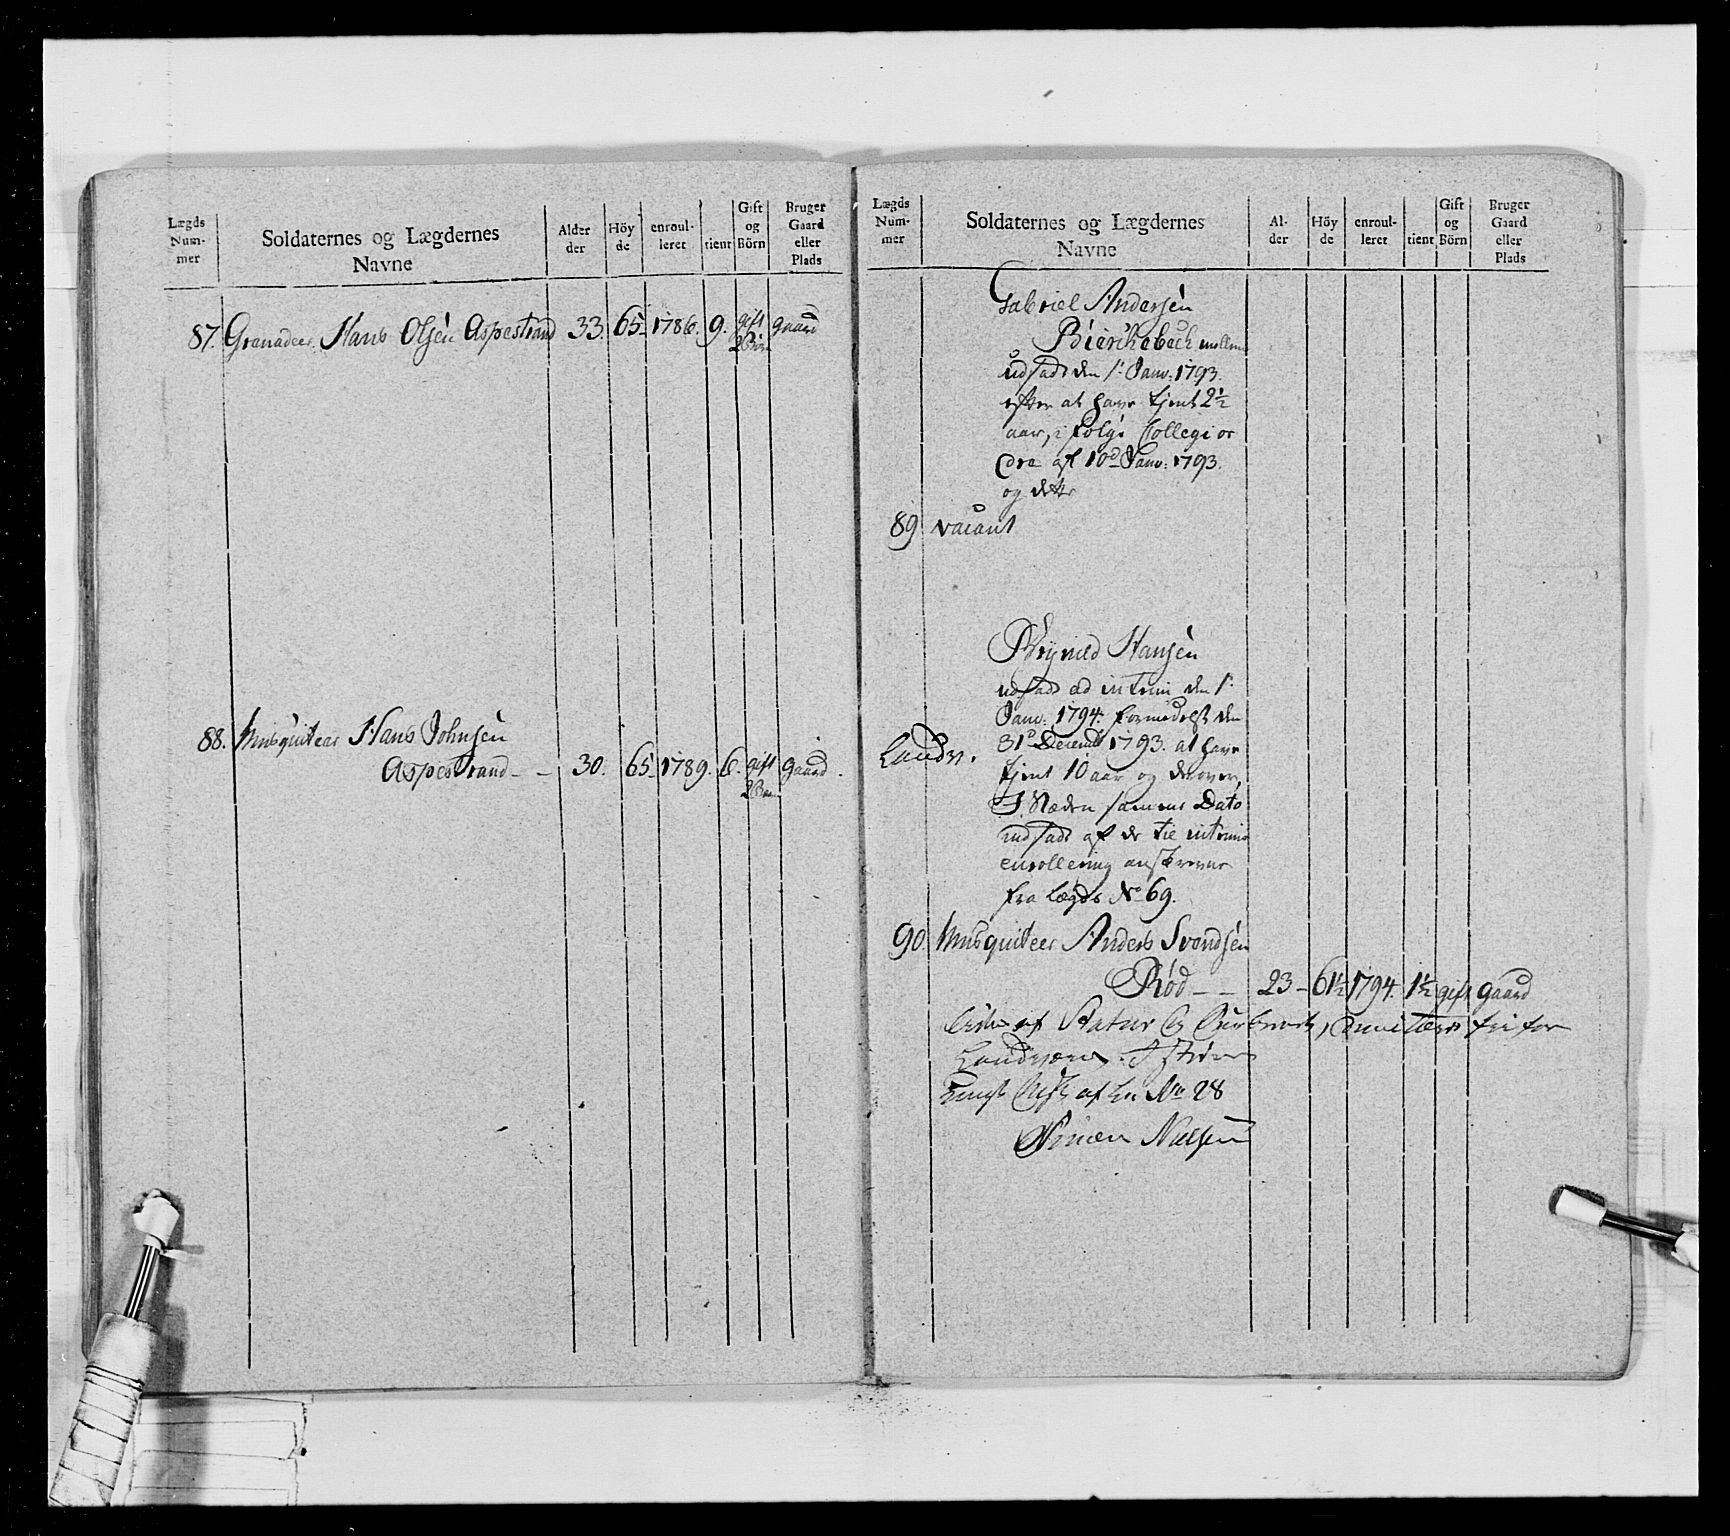 Lægds
Num-
mer
Soldaternes og Lægdernes
Navne
Alder
der
Höy
de
enroul-
leret
tient
Gift
og
Börn
Bruger
Gaard
eller
Plads
87. Granadeer Hans Olsen Aspestrand 33. 65 1786. 9. gift gaard
2 Börn
88. Musquiteer Hans Johnsen
Aspestrand - - 30. 65 1789. 6. gift gaard.
2 Börn
Lægds
Num-
mer
Soldaternes og Lægdernes
Navne
Al-
der
Höy
de
enroul-
leret
tient
Gift
og
Börn
Bruger
Gaard
eller
Plads
Gabriel Andersen
udsadt den 1. Janv: 1793.
efter at have tjent 2½
aar, i følge Collegi or
dre af 10d Janv: 1793.
og dette
89 vacant
Hansen
udsadt ad intrim den 1.
Janv: 1794. formedelst den
31d Decembr 1793. at have
Landv.
tjent 10 aar og derover,
I Stæden samme Dato
indsadt af de til intrims
enrollering anskrevne
fra Lægds No 69.
90. Musquiteer Anders Svendsen
Rød - - 23 - 61½ 1794. 1½ gift gaard
af Statur fri for
af No 28
Simen Nielsen